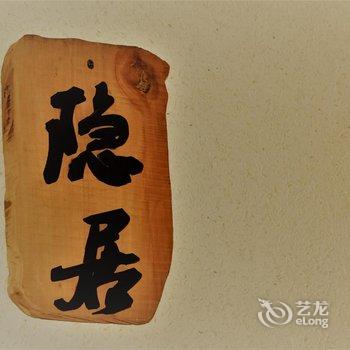 隐居
艺龙
eLong